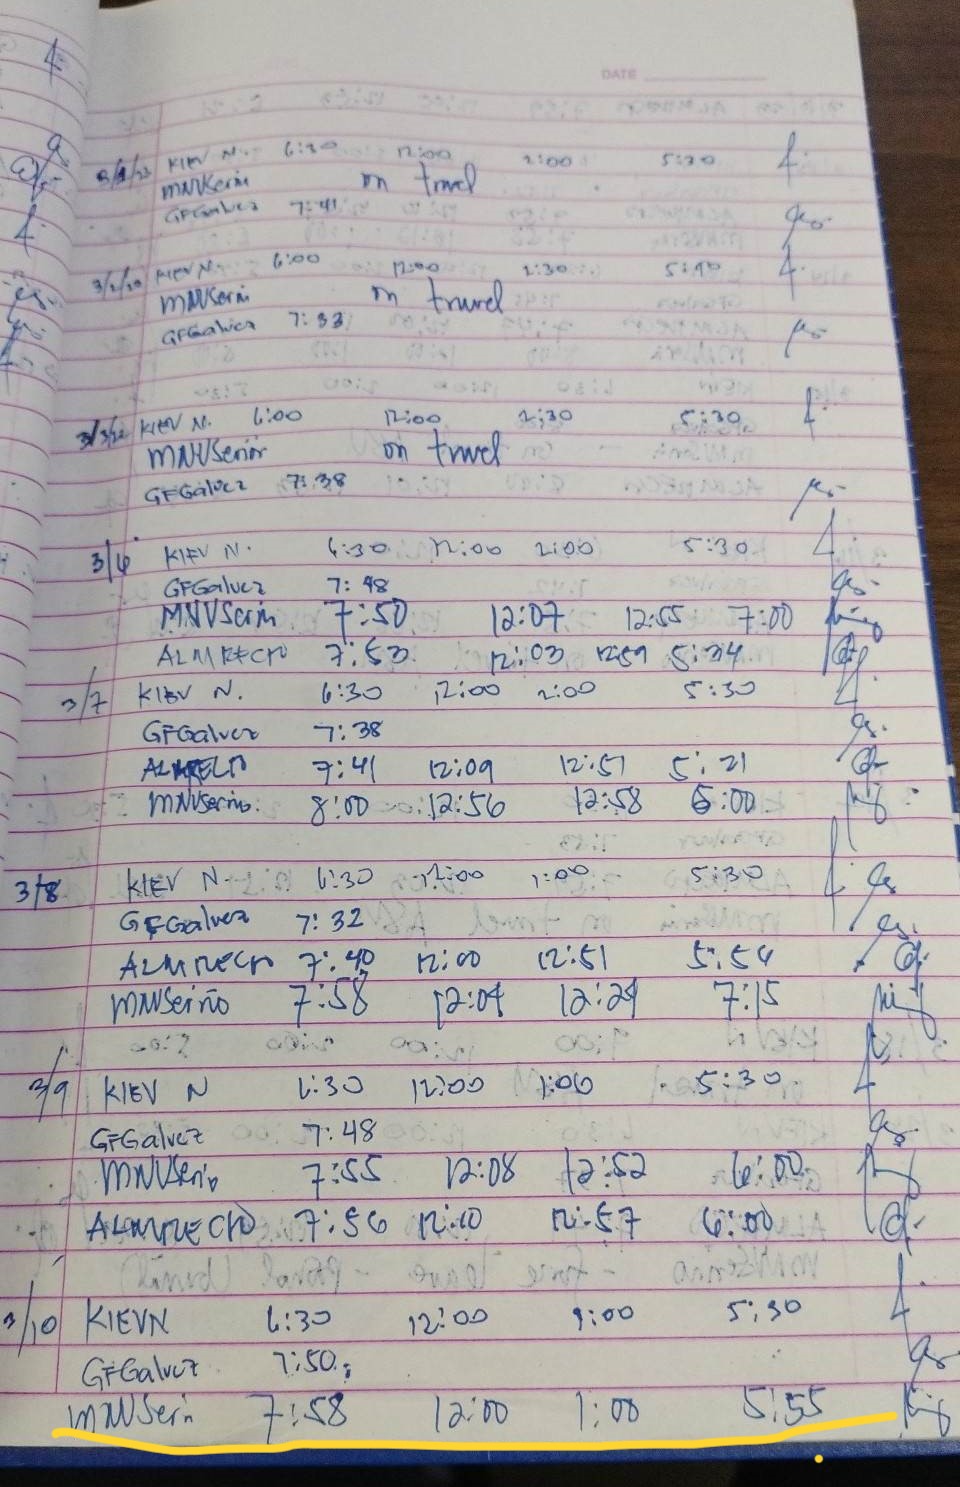 DATE
3/1/23 KIEV N. 6:30 12:00 1:00 5:30
MNVSerin on travel
GFGalvez 7:41
3/2/23 KIEV N. 6:00 12:00 1:30 5:40
MNVSerin on travel
GFGalvez 7:33
3/3/23 KIEV N. 6:00 12:00 1:30 5:30
MNVSerin on travel
GFGalvez 7:38
3/6 KIEV N. 6:30 12:00 1:00 5:30
GFGalvez 7:48
MNVSerin 7:50 12:07 12:55 7:00
ALMRECIO 7:53 12:03 12:59 5:34
3/7 KIEV N. 6:30 12:00 1:00 5:30
GFGalvez 7:38
ALMRECIO 7:41 12:09 12:51 5:21
MNVSerino 8:00 12:56 12:58 6:00
3/8 KIEV N. 6:30 12:00 1:00 5:30
GFGalvez 7:32
ALMRECIO 7:40 12:00 12:51 5:54
MNVSerino 7:58 12:04 12:24 7:15
3/9 KIEV N 6:30 12:00 1:00 5:30
GFGalvez 7:48
MNVSerin 7:55 12:08 12:52 6:00
ALMRECIO 7:56 12:10 12:57 6:00
3/10 KIEVN 6:30 12:00 1:00 5:30
GFGalvez 7:50
MNVSerin 7:58 12:00 1:00 5:55